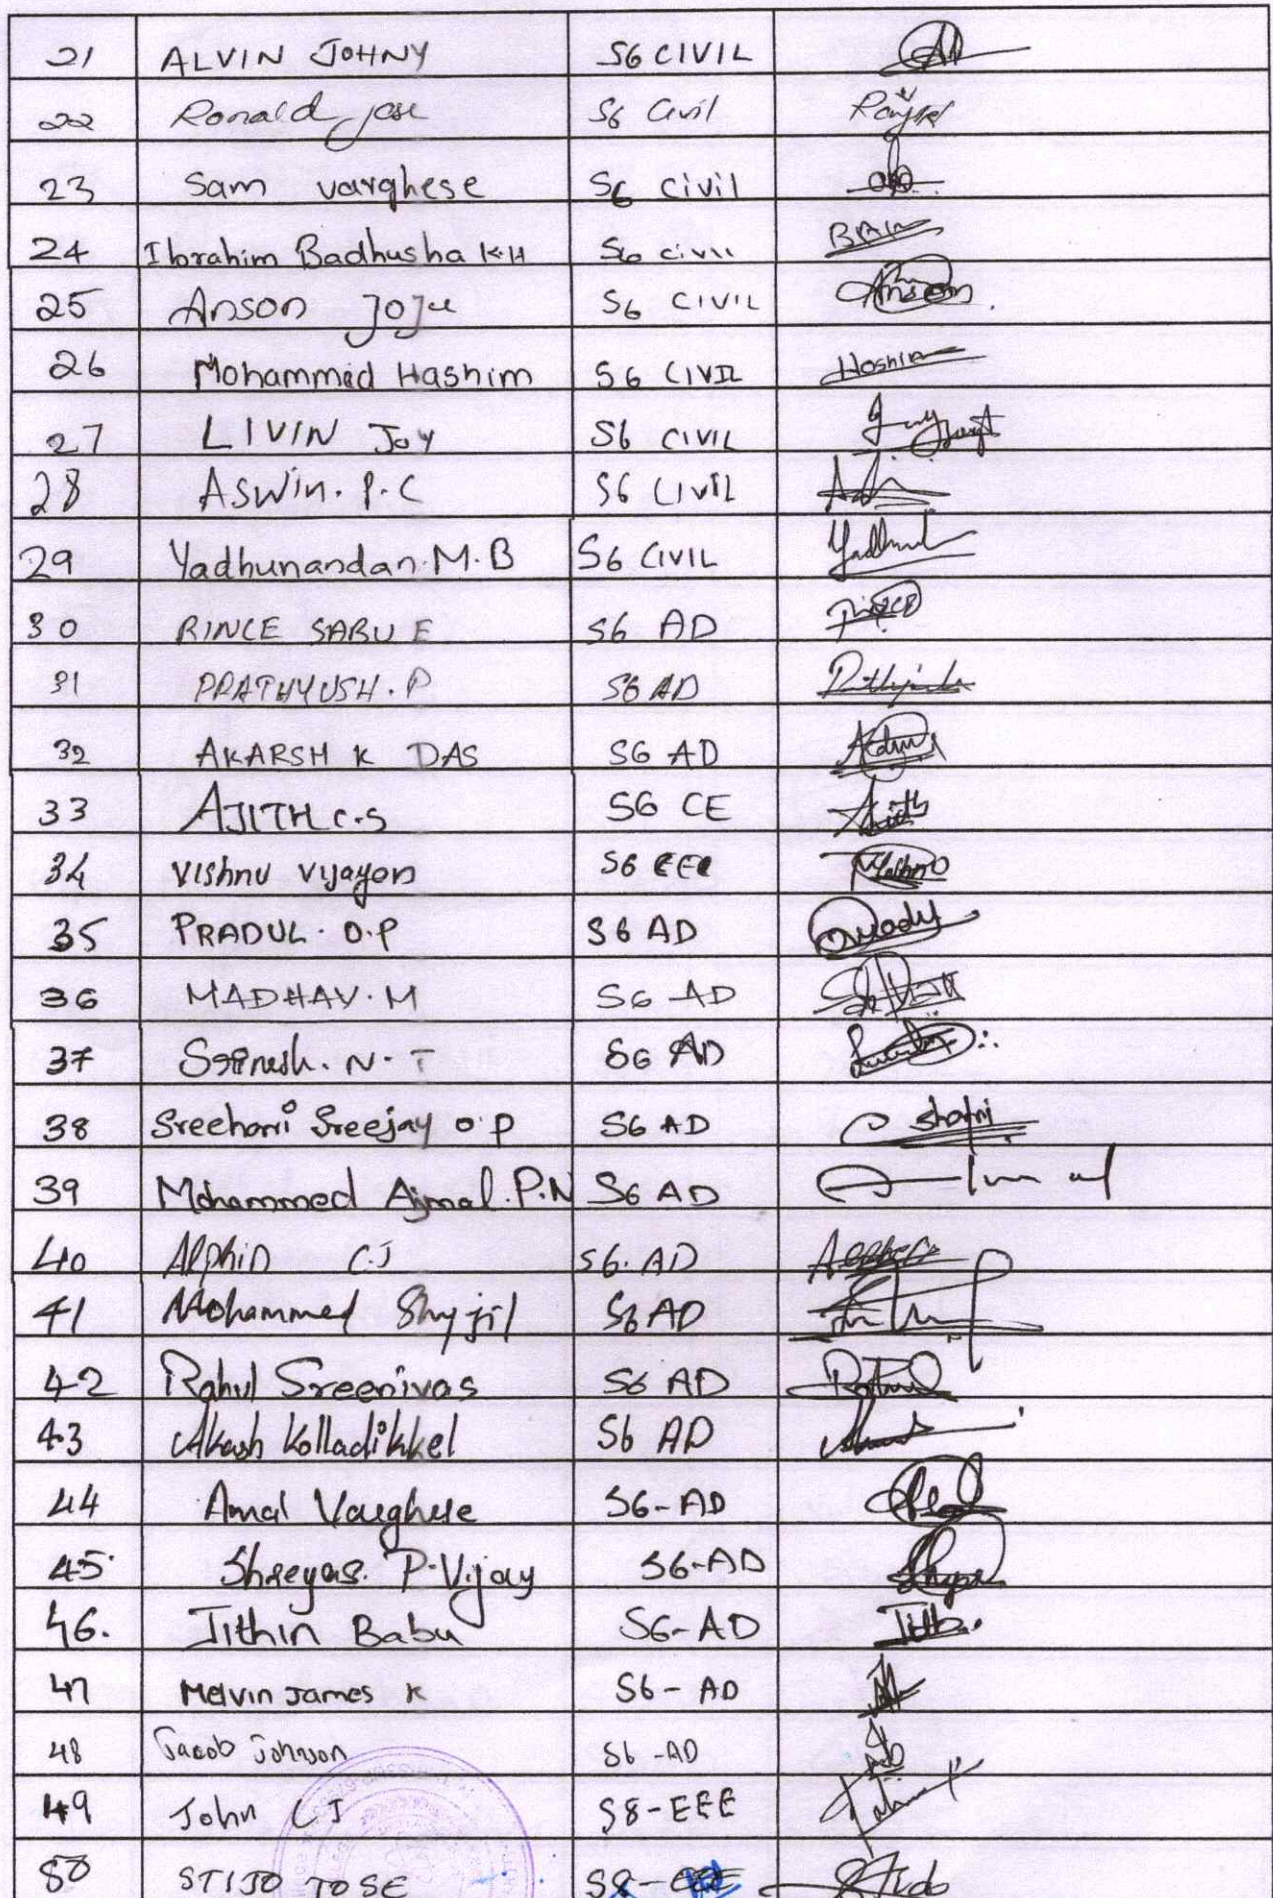 21 ALVIN JOHNY S6 CIVIL
22 Ronald jose S6 Civil
23 Sam varghese S6 civil
24 Ibrahim Badhusha K.H S6 civil
25 Anson Joju S6 CIVIL Anson
26 Mohammed Hashim S6 CIVIL Hashim
27 LIVIN Joy S6 CIVIL
28 Aswin. P. C S6 CIVIL
29 Yadhunandan. M. B S6 CIVIL
30 RINCE SABU E S6 AD
31 PRATHYUSH. P S6 AD
32 AKARSH K DAS S6 AD
33 AJITH C.S S6 CE Ajith
34 Vishnu Vijayan S6 EEE Vishnu
35 PRADUL. O.P S6 AD
36 MADHAV. M S6 AD
37 N. T S6 AD
38 Sreehari Sreejay O P S6 AD
39 Mohammed Ajmal. P.N S6 AD
40 Alphin C.J S6. AD
41 Mohammed Shyjil S6 AD
42 Rahul Sreenivas S6 AD Rahul
43 Akash Kolladikkel S6 AD
44 Amal Varghese S6-AD
45 Shreyas. P. Vijay S6-AD
46. Jithin Babu S6-AD
47 Melvin James K S6-AD
48 Jacob Johnson S6-AD
49 John C J S8-EEE
50 STIJO JOSE S8-EEE